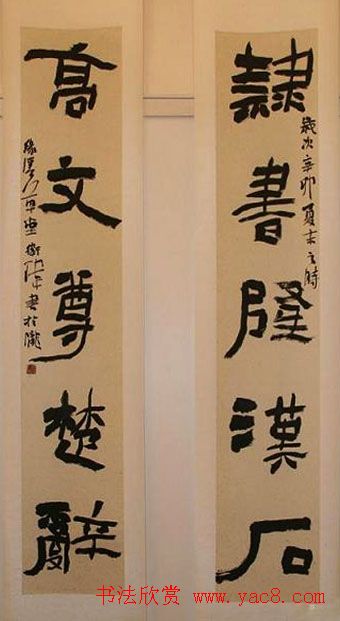 隸書隆漢石
歲次辛卯夏末之時
高文尊楚辭
书法欣赏 www.yac8.com